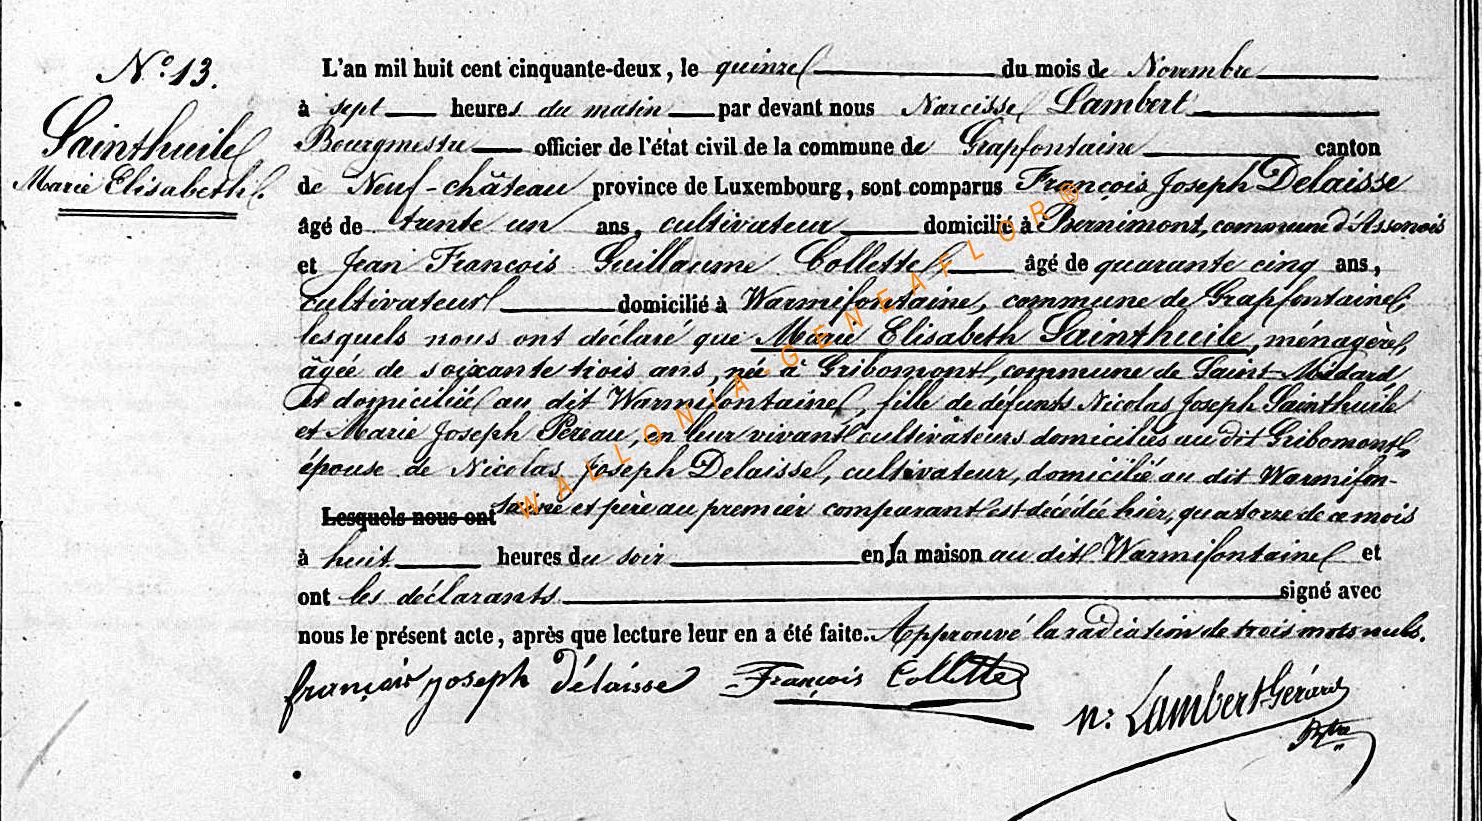 N° 13.
Sainthuile
Marie Elisabeth.
L'an mil huit cent cinquante-deux, le quinze du mois de Novembre
à sept heures du matin par devant nous Narcisse Lambert
Bourgmestre officier de l'état civil de la commune de Grapfontaine canton
de Neuf-château province de Luxembourg, sont comparus François Joseph Delaisse
âgé de trente un ans, cultivateur domicilié à Bernimont, commune d'Assenois
et Jean François Guillaume Collette, âgé de quarante cinq ans,
cultivateur domicilié à Warmifontaine, commune de Grapfontaine;
lesquels nous ont déclaré que Marie Elisabeth Sainthuile, ménagère,
âgée de soixante trois ans, née à Gribomont, commune de Saint-Médard,
et domiciliée au dit Warmifontaine, fille de défunts Nicolas Joseph Sainthuile
et Marie Joseph Pereau, en leur vivant cultivateurs domiciliés au dit Gribomont,
épouse de Nicolas Joseph Delaisse, cultivateur, domicilié au dit Warmifon-
Lesquels nous ont et père au premier comparant est décédée hier, quatorze de ce mois
à huit heures du soir en sa maison au dit Warmifontaine et
ont les déclarants signé avec
nous le présent acte, après que lecture leur en a été faite.. Approuvé la radiation de trois mots nuls.
françois joseph Délaisse François Collette
n: Lambert-Gérard
WALLONIA-GENEAFLOR®